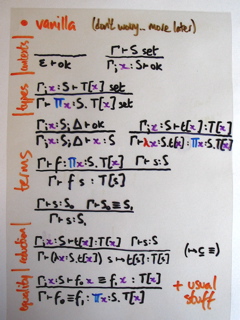 • vanilla (don't worry... more later)
contexts
ε ⊢ ok
Γ ⊢ S set
Γ; x:S ⊢ ok
types
Γ; x:S ⊢ T[x] set
Γ ⊢ Πx:S. T[x] set
terms
Γ; x:S; Δ ⊢ ok
Γ; x:S; Δ ⊢ x:S
Γ; x:S ⊢ t[x]:T[x]
Γ ⊢ λx:S.t[x]:Πx:S.T[x]
Γ ⊢ f:Πx:S.T[x] Γ ⊢ s:S
Γ ⊢ f s : T[s]
Γ ⊢ s:S₀ Γ ⊢ S₀ ≡ S₁
Γ ⊢ s:S₁
reduction
Γ; x:S ⊢ t[x]:T[x] Γ ⊢ s:S
Γ ⊢ (λx:S.t[x]) s ↦ t[s]:T[s]
(↦ ⊆ ≡)
equality
Γ; x:S ⊢ f₀ x ≡ f₁ x : T[x]
Γ ⊢ f₀ ≡ f₁ : Πx:S. T[x]
+ usual stuff